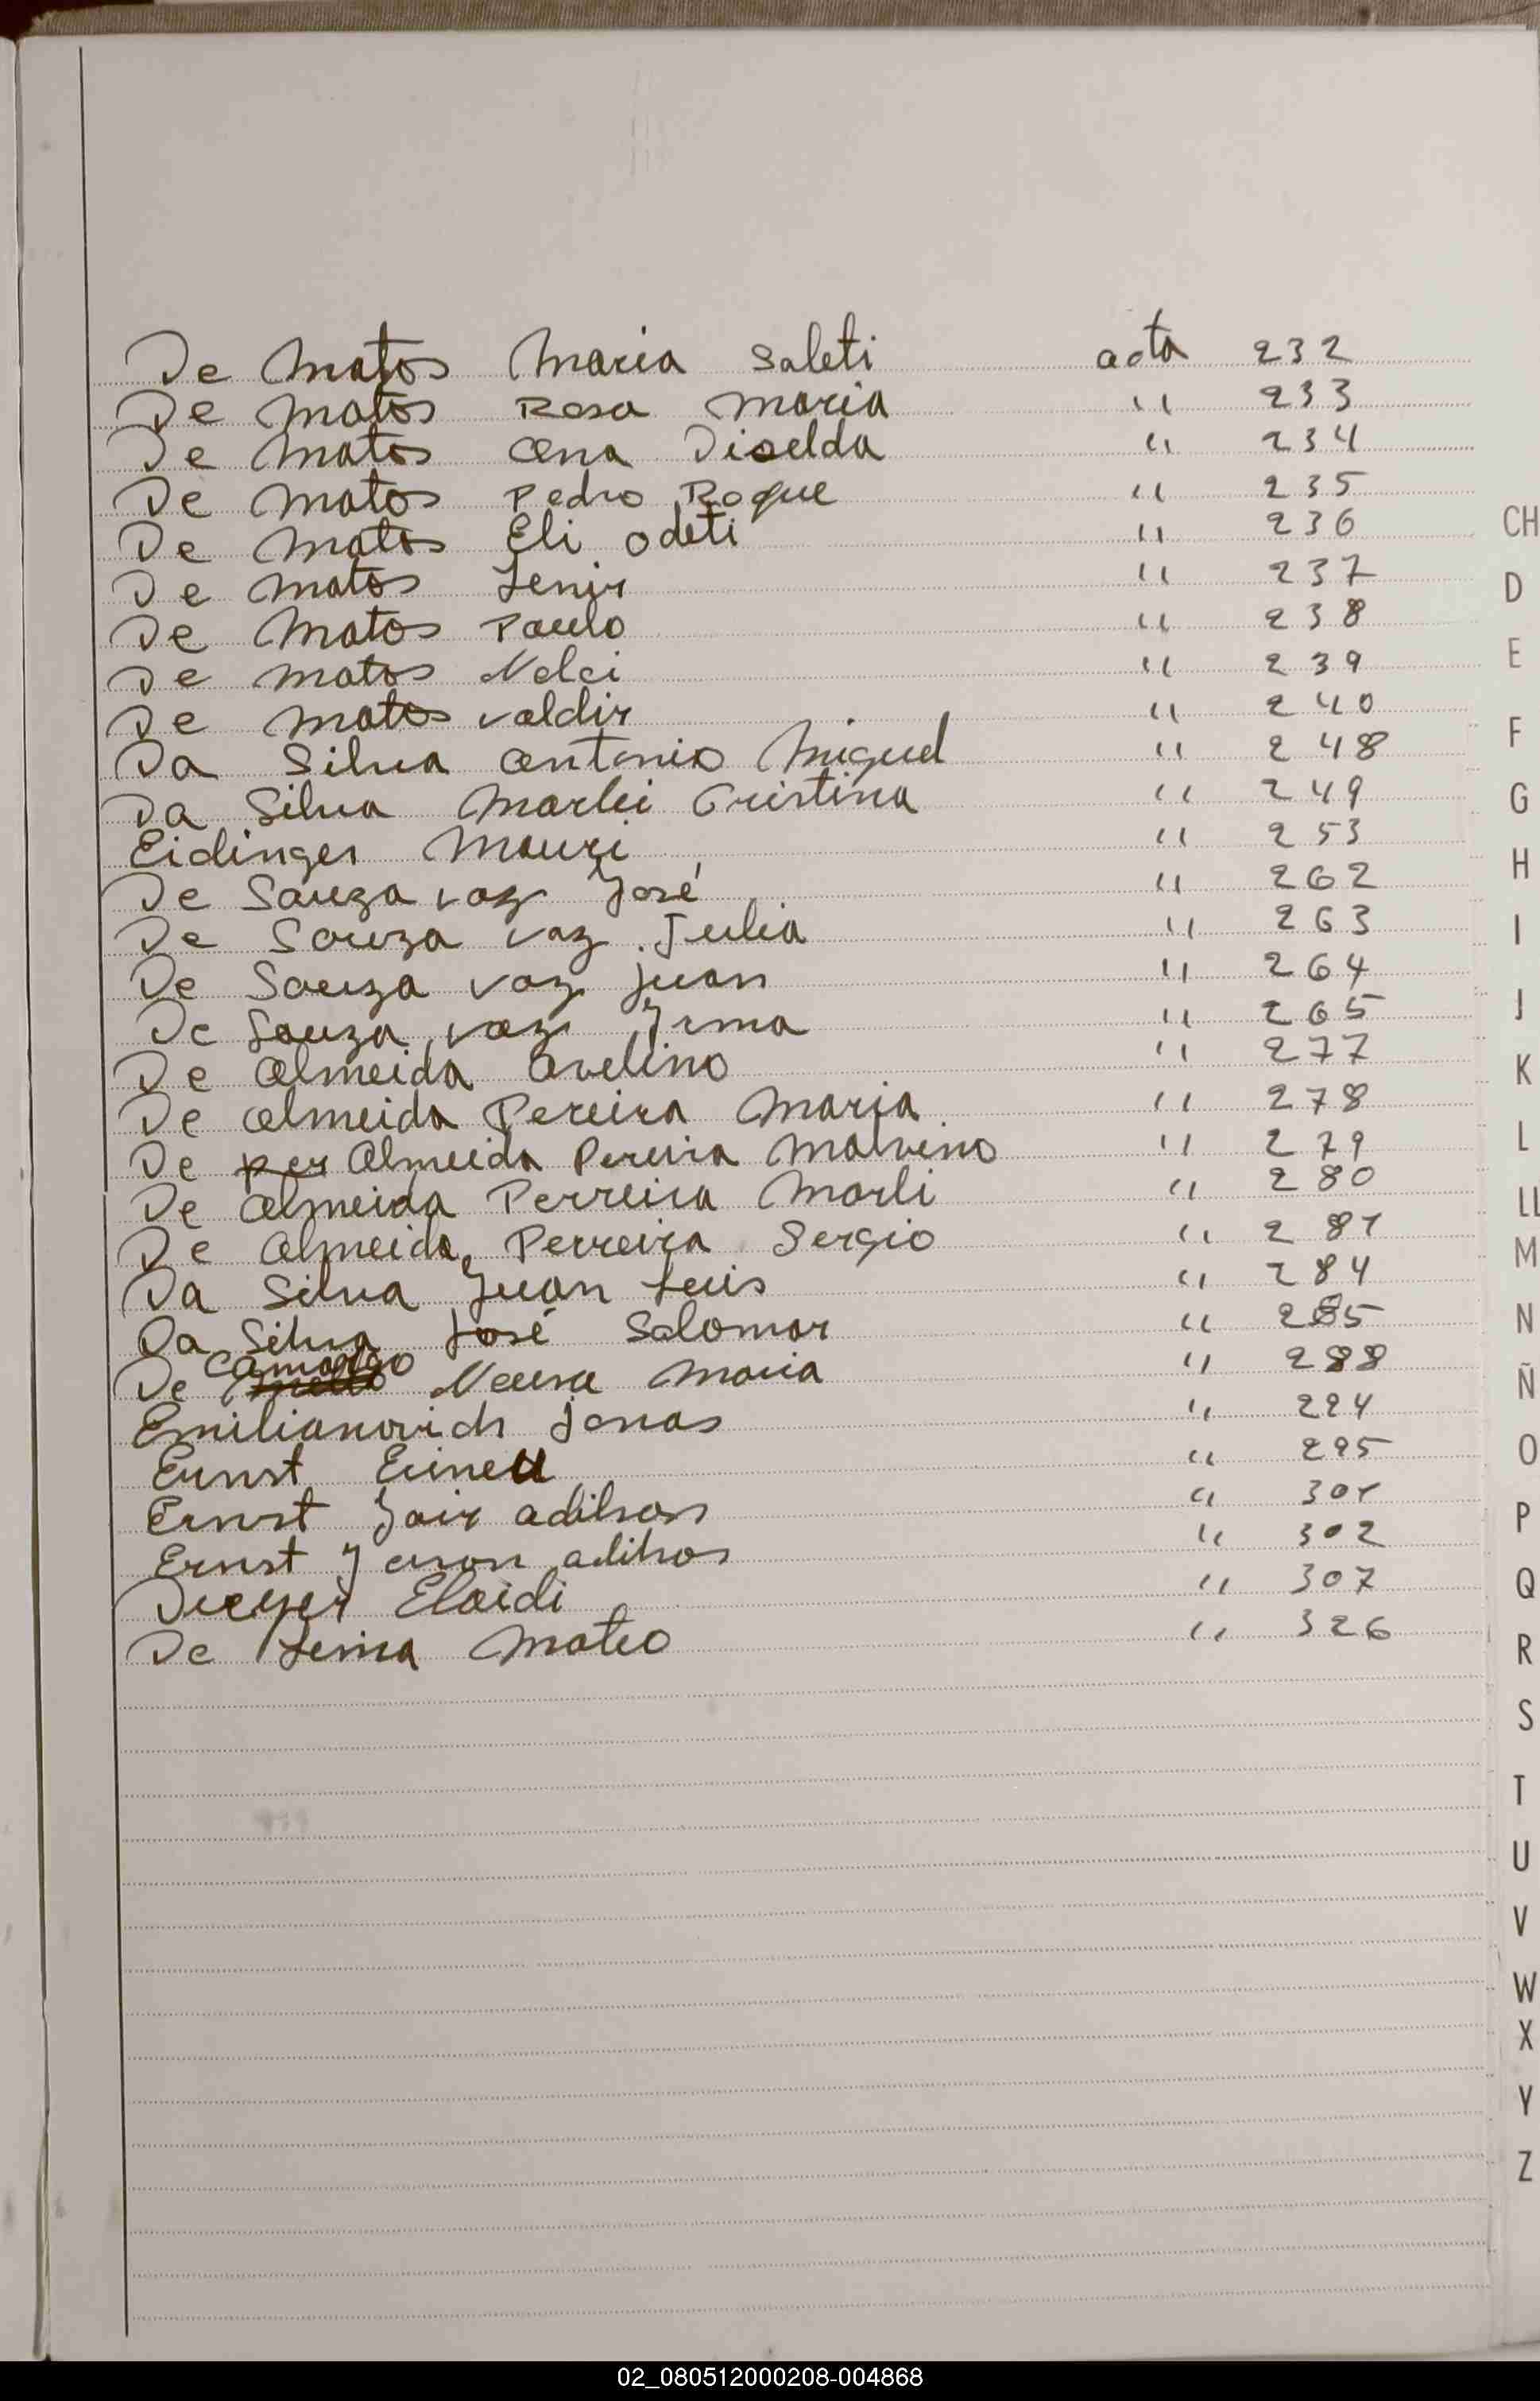 De Matos Maria Saleti acta 232
De Matos Rosa Maria " 233
De Matos Ana Dioelda " 234
De Matos Pedro Roque " 235
De Matos Eli Odeti " 236
De Matos Lenir " 237
De Matos Paulo " 238
De Matos Nelci " 239
De Matos Valdir " 240
Da Silva Antonio Miguel " 248
Da Silva Marlei Cristina " 249
Eidinger Mauri " 253
De Sauza vaz José " 262
De Souza vaz Julia " 263
De Souza vaz Juan " 264
De Souza vaz Irma " 265
De Almeida Avelino " 277
De Almeida Pereira Maria " 278
De per Almeida Pereira Malveino " 279
De Almeida Perreira Marli " 280
De Almeida Perreira Sergio " 281
Da Silva Juan Luis " 284
Da Silva José Salomar " 285
Camargo
De Neusa Maria " 288
Emilianovich Jonas " 294
Ernst Eineu " 295
Ernst Jair adilson " 301
Ernst adilson " 302
Dreyer Elaidi " 307
De Lima Mateo " 326
CH
D
E
F
G
H
I
J
K
L
LL
M
N
Ñ
O
P
Q
R
S
T
U
V
W
X
Y
Z
02_080512000208-004868